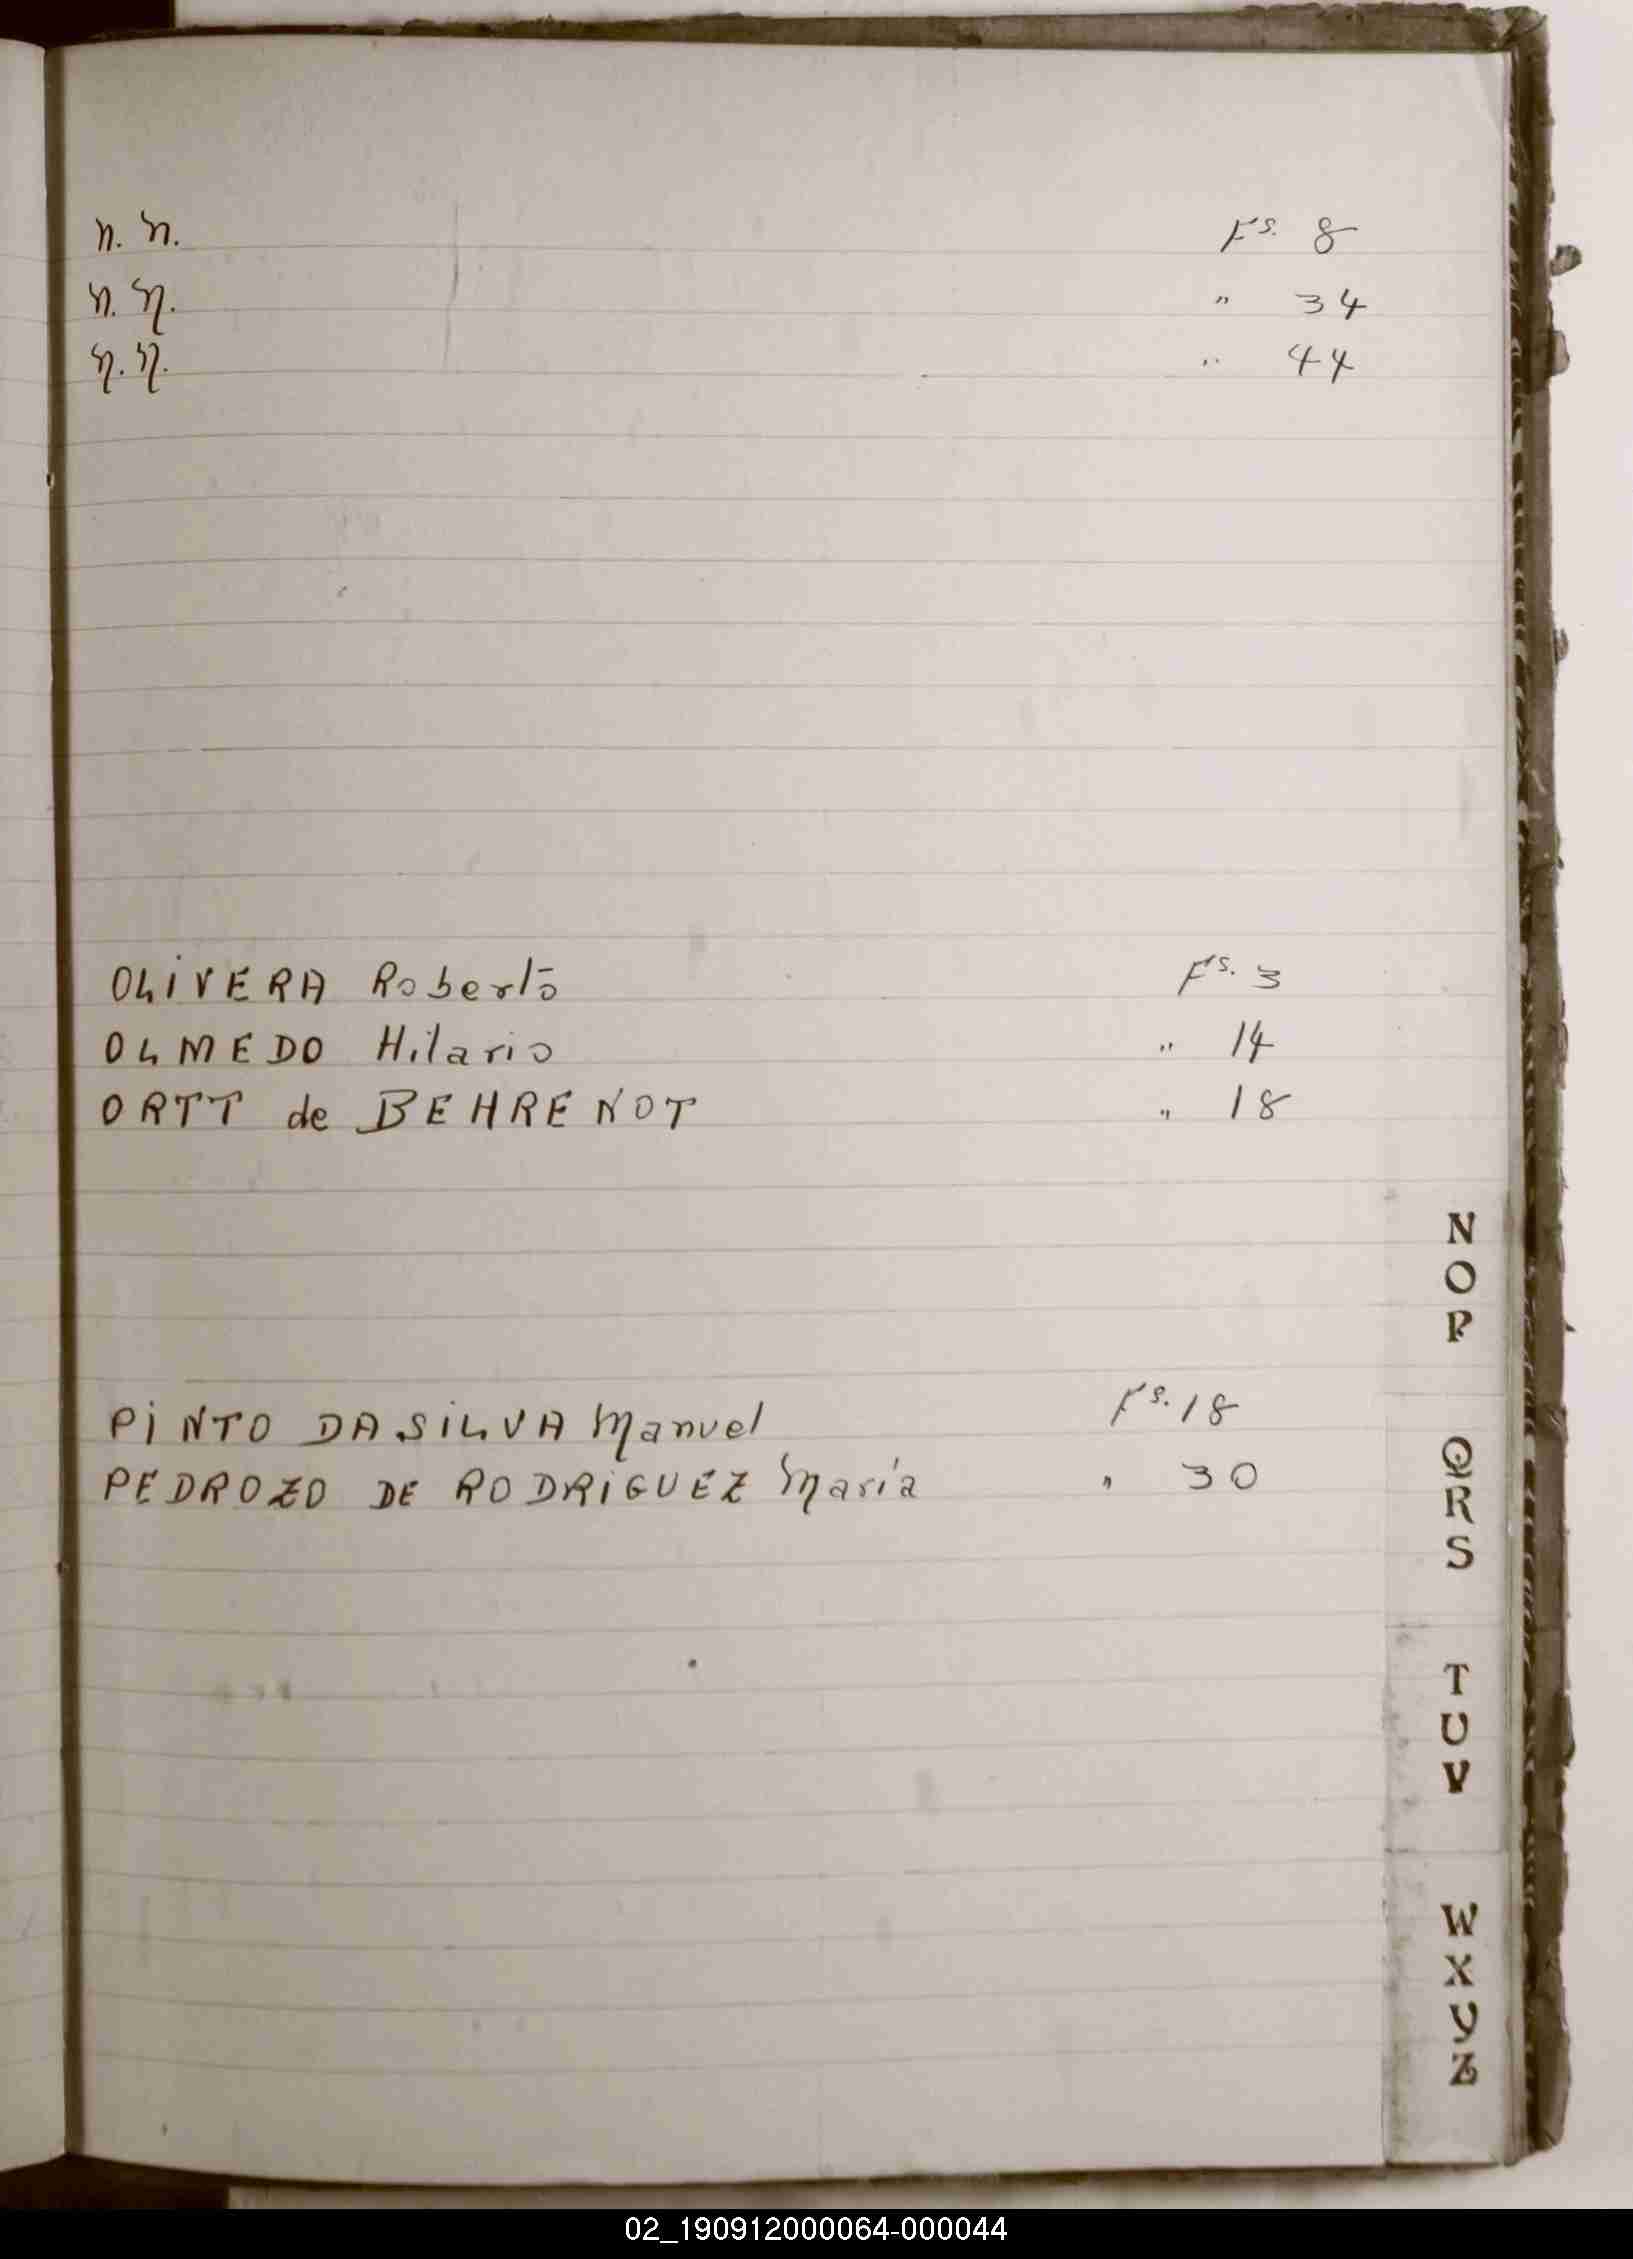 N. N. Fs. 8
N. N. " 34
N. N. " 44
OLIVERA Roberto Fs. 3
OLMEDO Hilario " 14
ORTT de BEHRENOT " 18
PINTO DA SILVA Manuel Fs. 18
PEDROZO DE RODRIGUEZ María " 30
N
O
P
Q
R
S
T
U
V
W
X
Y
Z
02_190912000064-000044